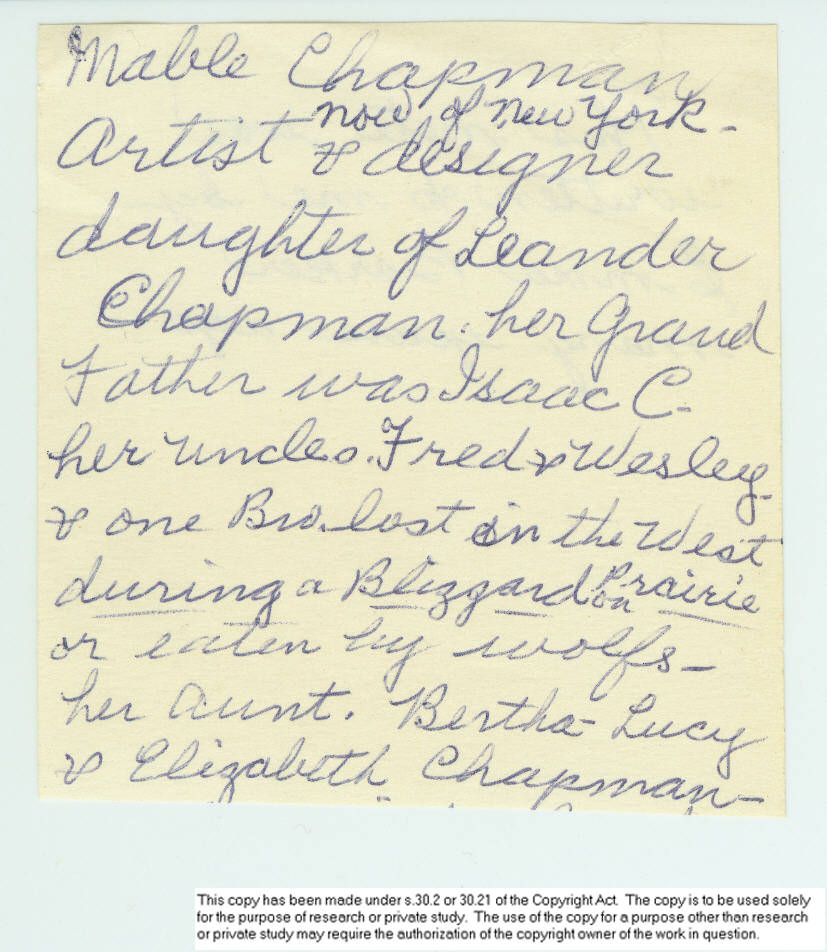 Mable Chapman
now of New York-
Artist & designer
daughter of Leander
Chapman. her Grand
Father was Isaac C.
her uncles. Fred & Wesley-
& one Bro. lost in the West
during a Blizzard on Prairie
or eaten by wolfs-
her aunt. Bertha- Lucy
& Elizabeth Chapman-
This copy has been made under s.30.2 or 30.21 of the Copyright Act. The copy is to be used solely
for the purpose of research or private study. The use of the copy for a purpose other than research
or private study may require the authorization of the copyright owner of the work in question.